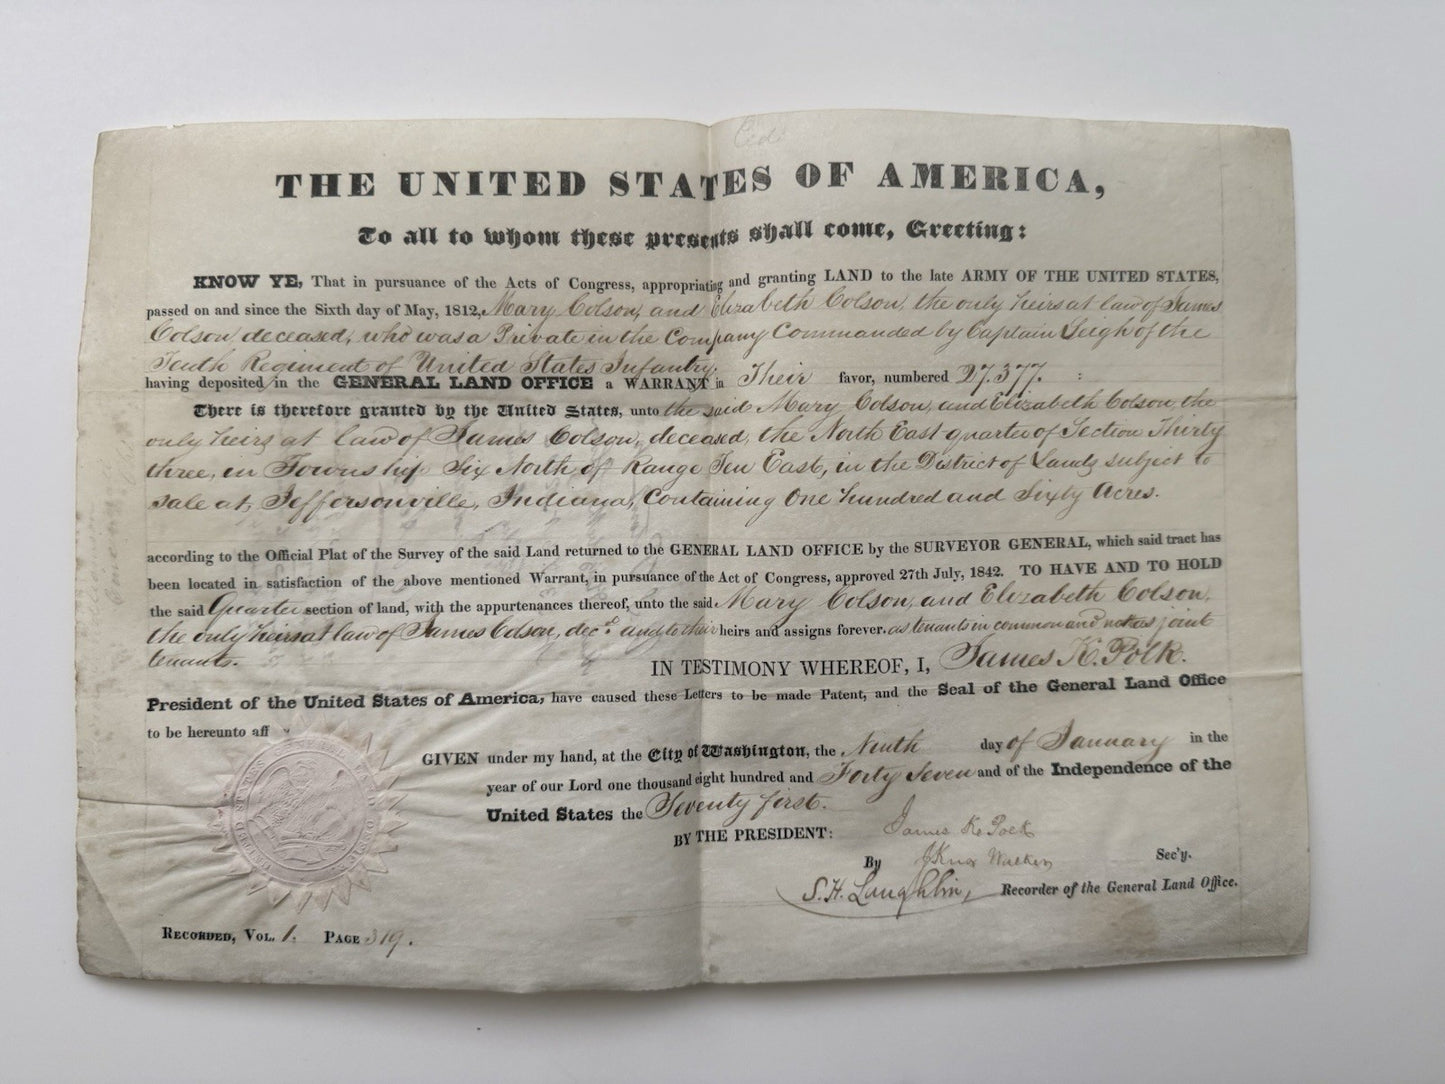 THE UNITED STATES OF AMERICA,
To all to whom these presents shall come, Greeting:
KNOW YE, That in pursuance of the Acts of Congress, appropriating and granting LAND to the late ARMY OF THE UNITED STATES,
passed on and since the Sixth day of May, 1812, Mary Colson, and Elizabeth Colson, the only heirs at law of James
Colson, deceased, who was a Private in the Company Commanded by Captain Leigh of the
Tenth Regiment of United States Infantry.
having deposited in the GENERAL LAND OFFICE a WARRANT in Their favor, numbered 27.377. :
There is therefore granted by the United States, unto the said Mary Colson, and Elizabeth Colson, the
only heirs at law of James Colson, deceased, the North East quarter of Section Thirty
three, in Township Six North of Range Ten East, in the District of Lands subject to
sale at, Jeffersonville, Indiana, Containing One hundred and Sixty Acres.
according to the Official Plat of the Survey of the said Land returned to the GENERAL LAND OFFICE by the SURVEYOR GENERAL, which said tract has
been located in satisfaction of the above mentioned Warrant, in pursuance of the Act of Congress, approved 27th July, 1842. TO HAVE AND TO HOLD
the said Quarter section of land, with the appurtenances thereof, unto the said Mary Colson, and Elizabeth Colson,
the only heirs at law of James Colson, decd. and to their heirs and assigns forever. as tenants in common and not as joint
tenants.
IN TESTIMONY WHEREOF, I, James K. Polk.
President of the United States of America, have caused these Letters to be made Patent, and the Seal of the General Land Office
to be hereunto aff
GIVEN under my hand, at the City of Washington, the Ninth day of January in the
year of our Lord one thousand eight hundred and Forty Seven and of the Independence of the
United States the Seventy first.
BY THE PRESIDENT: James K. Polk
By J Knox Walker Sec'y.
S. H. Laughlin, Recorder of the General Land Office.
RECORDED, VOL. 1. PAGE 319.